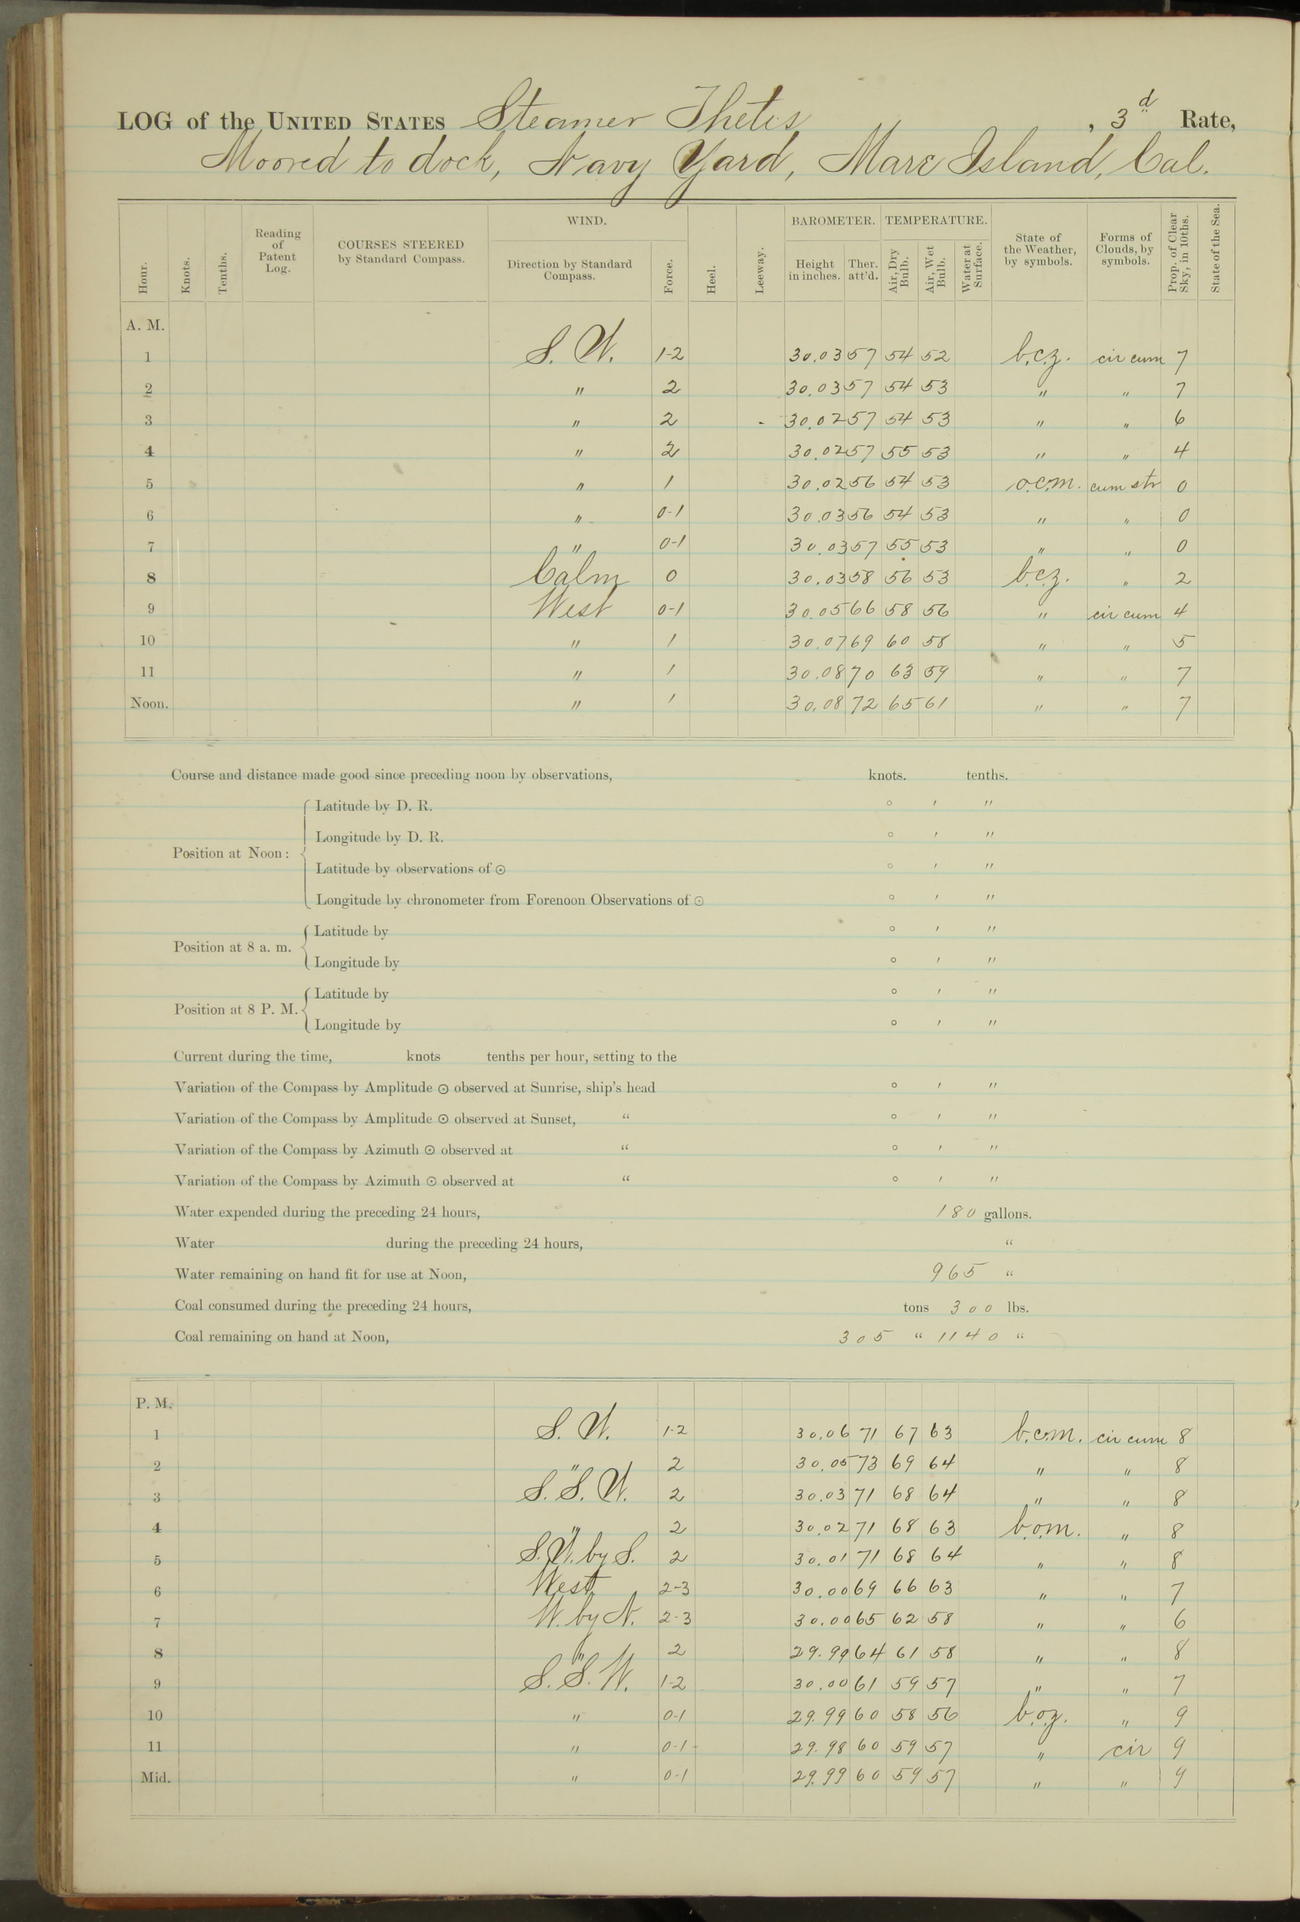 LOG of the UNITED STATES Steamer Thetis, 3d Rate,
Moored to dock, Navy Yard, Mare Island, Cal.
Hour. Knots. Tenths. Reading of Patent Log. COURSES STEERED by Standard Compass. WIND. Direction by Standard Compass. Force. Heel. Leeway. BAROMETER. Height in inches. Ther. att'd. TEMPERATURE. Air, Dry Bulb. Air, Wet Bulb. Water at Surface. State of the Weather, by symbols. Forms of Clouds, by symbols. Prop. of Clear Sky, in 10ths. State of the Sea.
A. M.
1 S. W. 1-2 30.03 57 54 52 b.c.z. cir cum 7
2 " 2 30.03 57 54 53 " " 7
3 " 2 30.02 57 54 53 " " 6
4 " 2 30.02 57 55 53 " " 4
5 " 1 30.02 56 54 53 o.c.m. cum str 0
6 " 0-1 30.03 56 54 53 " " 0
7 " 0-1 30.03 57 55 53 " " 0
8 Calm 0 30.03 58 56 53 b.c.z. " 2
9 West 0-1 30.05 66 58 56 " cir cum 4
10 " 1 30.07 69 60 58 " " 5
11 " 1 30.08 70 63 59 " " 7
Noon. " 1 30.08 72 65 61 " " 7
Course and distance made good since preceding noon by observations, knots. tenths.
Position at Noon: Latitude by D. R. ° ′ ″
Longitude by D. R. ° ′ ″
Latitude by observations of ⊙ ° ′ ″
Longitude by chronometer from Forenoon Observations of ⊙ ° ′ ″
Position at 8 a. m. Latitude by ° ′ ″
Longitude by ° ′ ″
Position at 8 P. M. Latitude by ° ′ ″
Longitude by ° ′ ″
Current during the time, knots tenths per hour, setting to the
Variation of the Compass by Amplitude ⊙ observed at Sunrise, ship's head ° ′ ″
Variation of the Compass by Amplitude ⊙ observed at Sunset, " ° ′ ″
Variation of the Compass by Azimuth ⊙ observed at " ° ′ ″
Variation of the Compass by Azimuth ⊙ observed at " ° ′ ″
Water expended during the preceding 24 hours, 180 gallons.
Water during the preceding 24 hours, "
Water remaining on hand fit for use at Noon, 965 "
Coal consumed during the preceding 24 hours, tons 300 lbs.
Coal remaining on hand at Noon, 305 " 1140 "
P. M.
1 S. W. 1-2 30.06 71 67 63 b.c.m. cir cum 8
2 " 2 30.05 73 69 64 " " 8
3 S. S. W. 2 30.03 71 68 64 " " 8
4 " 2 30.02 71 68 63 b.o.m. " 8
5 S.W. by S. 2 30.01 71 68 64 " " 8
6 West 2-3 30.00 69 66 63 " " 7
7 W. by N. 2-3 30.00 65 62 58 " " 6
8 " 2 29.99 64 61 58 " " 8
9 S. S. W. 1-2 30.00 61 59 57 " " 7
10 " 0-1 29.99 60 58 56 b.o.z. " 9
11 " 0-1 29.98 60 59 57 " cir 9
Mid. " 0-1 29.99 60 59 57 " " 9